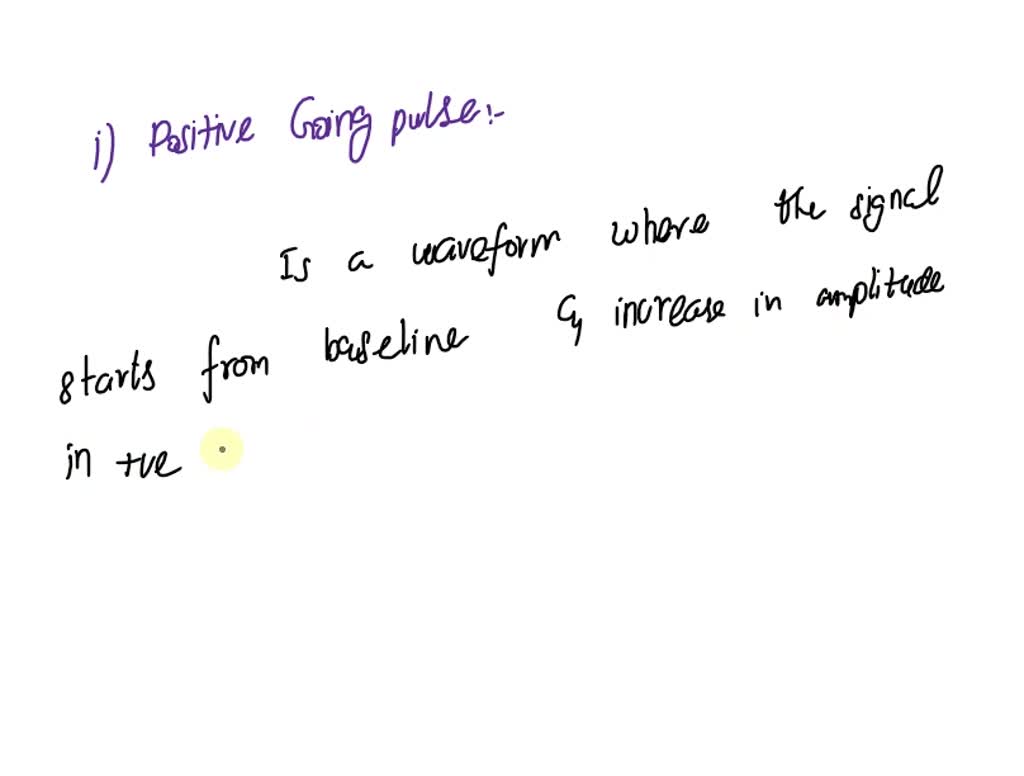 i) Positive Going pulse:-
Is a waveform where the signal
starts from baseline & increase in amplitude
in +ve